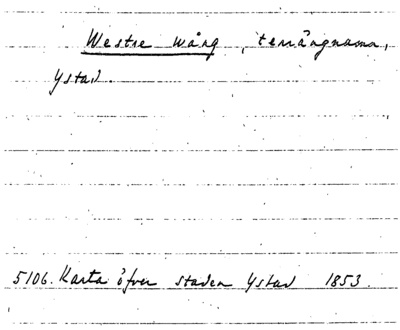 Westre wång, terrängnamn,
Ystad.
5106. Karta öfver staden Ystad 1853.